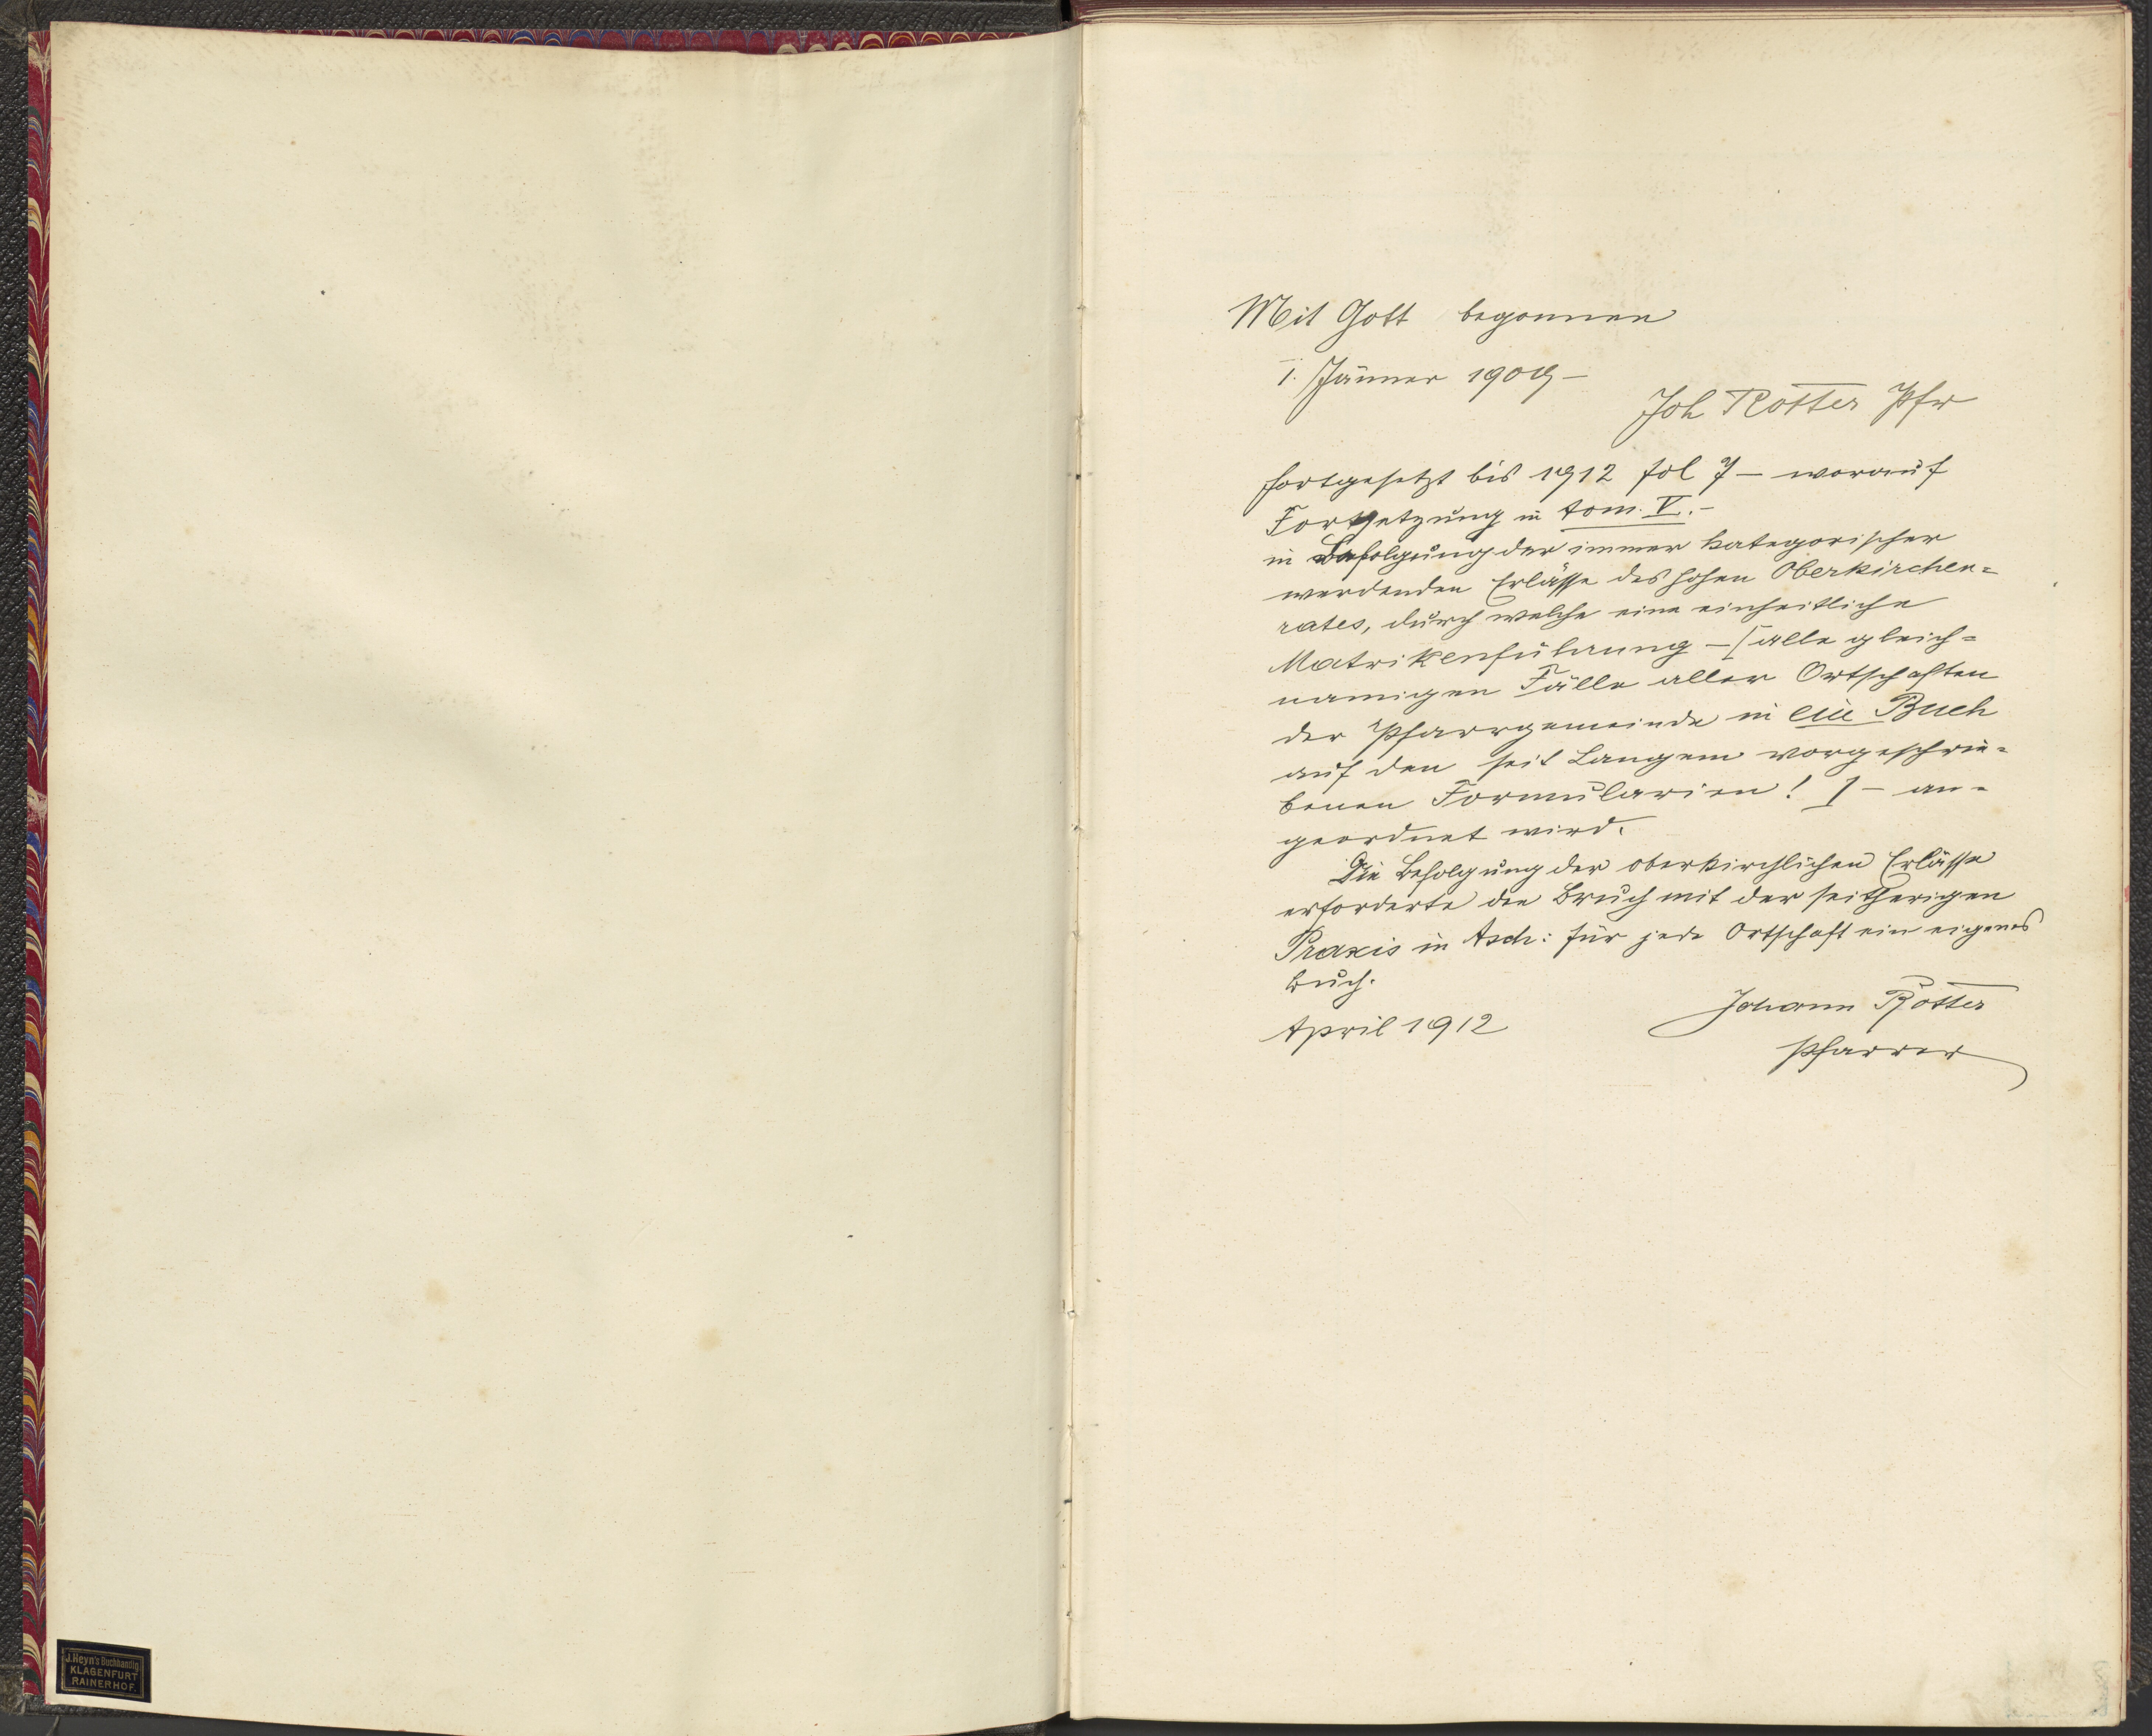 J. Heyn's Buchhandlg
KLAGENFURT
RAINERHOF.
Mit Gott begonnen
1. Jänner 1909 –
Joh Rotter Pfr
fortgesetzt bis 1912 fol 7 – worauf
Fortsetzung in tom. V. –
in Befolgung der immer kategorischer
werdenden Erlässe des hohen Oberkirchen=
rates, durch welche eine einheitliche
Matrikenführung – [alle gleich=
namigen Fälle aller Ortschaften
der Pfarrgemeinde in ein Buch
auf den seit Langem vorgeschrie=
benen Formularien! ] – an=
geordnet wird.
Die Befolgung der oberkirchlichen Erlässe
erforderte den Bruch mit der seitherigen
Praxis in : für jede Ortschaft ein eigenes
Buch.
April 1912
Johann Rotter
Pfarrer